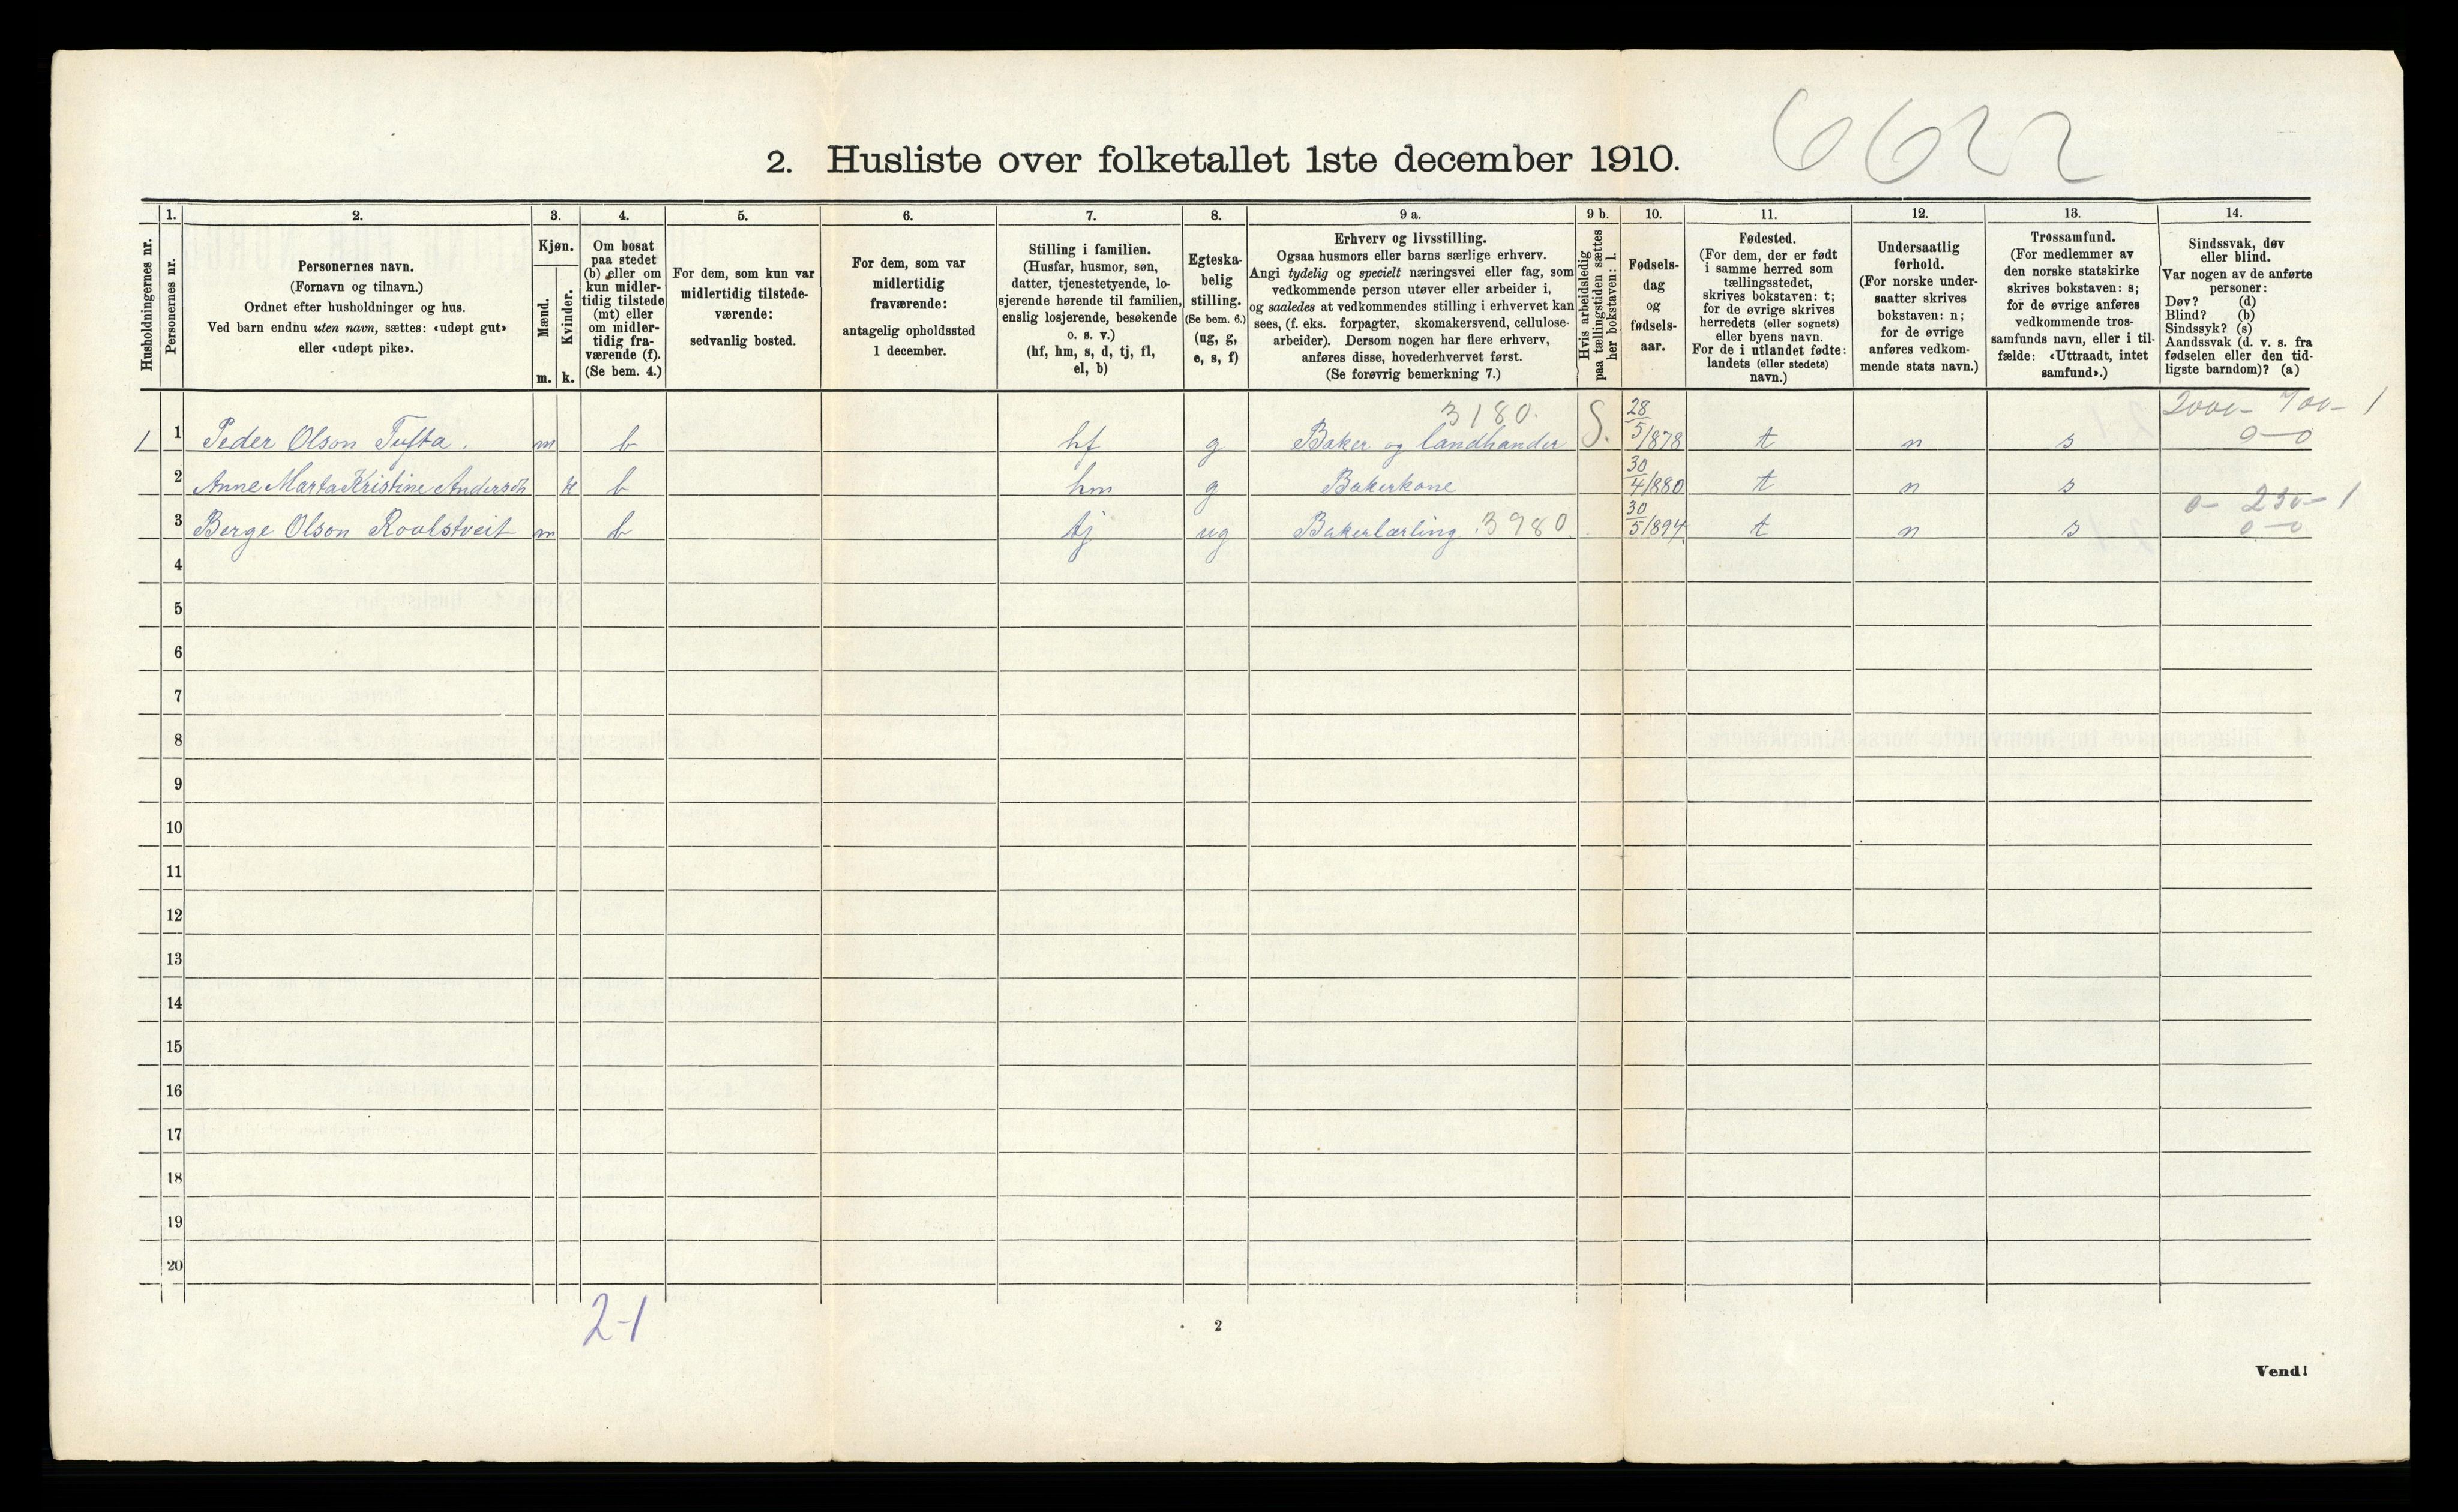 6622
2. Husliste over folketallet 1ste december 1910.
Husholdningernes nr.
1.
Personernes nr.
2.
Personernes navn.
(Fornavn og tilnavn.)
Ordnet efter husholdninger og hus.
Ved barn endnu uten navn, sættes: «udøpt gut»
eller «udøpt pike».
3.
Kjøn.
Mænd.
m.
Kvinder.
k.
4.
Om bosat
paa stedet
(b) eller om
kun midler-
tidig tilstede
(mt) eller
om midler-
tidig fra-
værende (f).
(Se bem. 4.)
5.
For dem, som kun var
midlertidig tilstede-
værende:
sedvanlig bosted.
6.
For dem, som var
midlertidig
fraværende:
antagelig opholdssted
1 december.
7.
Stilling i familien.
(Husfar, husmor, søn,
datter, tjenestetyende, lo-
sjerende hørende til familien,
enslig losjerende, besøkende
o. s. v.)
(hf, hm, s, d, tj, fl,
el, b)
8.
Egteska-
belig
stilling.
(Se bem. 6.)
(ug, g,
e, s, f)
9 a.
Erhverv og livsstilling.
Ogsaa husmors eller barns særlige erhverv.
Angi tydelig og specielt næringsvei eller fag, som
vedkommende person utøver eller arbeider i,
og saaledes at vedkommendes stilling i erhvervet kan
sees, (f. eks. forpagter, skomakersvend, cellulose-
arbeider). Dersom nogen har flere erhverv,
anføres disse, hovederhvervet først.
(Se forøvrig bemerkning 7.)
9 b.
Hvis arbeidsledig
paa tællingstiden sættes
her bokstaven: l.
10.
Fødsels-
dag
og
fødsels-
aar.
11.
Fødested.
(For dem, der er født
i samme herred som
tællingsstedet,
skrives bokstaven: t;
for de øvrige skrives
herredets (eller sognets)
eller byens navn.
For de i utlandet fødte:
landets (eller stedets)
navn.)
12.
Undersaatlig
forhold.
(For norske under-
saatter skrives
bokstaven: n;
for de øvrige
anføres vedkom-
mende stats navn.)
13.
Trossamfund.
(For medlemmer av
den norske statskirke
skrives bokstaven: s;
for de øvrige anføres
vedkommende tros-
samfunds navn, eller i til-
fælde: «Uttraadt, intet
samfund».)
14.
Sindssvak, døv
eller blind.
Var nogen av de anførte
personer:
Døv? (d)
Blind? (b)
Sindssyk? (s)
Aandssvak (d. v. s. fra
fødselen eller den tid-
ligste barndom)? (a)
3180. 28 2000- 700- 1
1 1 Peder Olson Tufta. m b hf g Baker og landhander S. 5/878 t n s 0-0
30
2 Anne Marta Kristine Anderson k b hm g Bakerkone 4/880 t n s
30 0- 250- 1
3 Berge Olson Roalstveit m b tj ug Bakerlærling. 3980. 5/894 t n s 0-0
4
5
6
7
8
9
10
11
12
13
14
15
16
17
18
19
20
2-1
2
Vend!